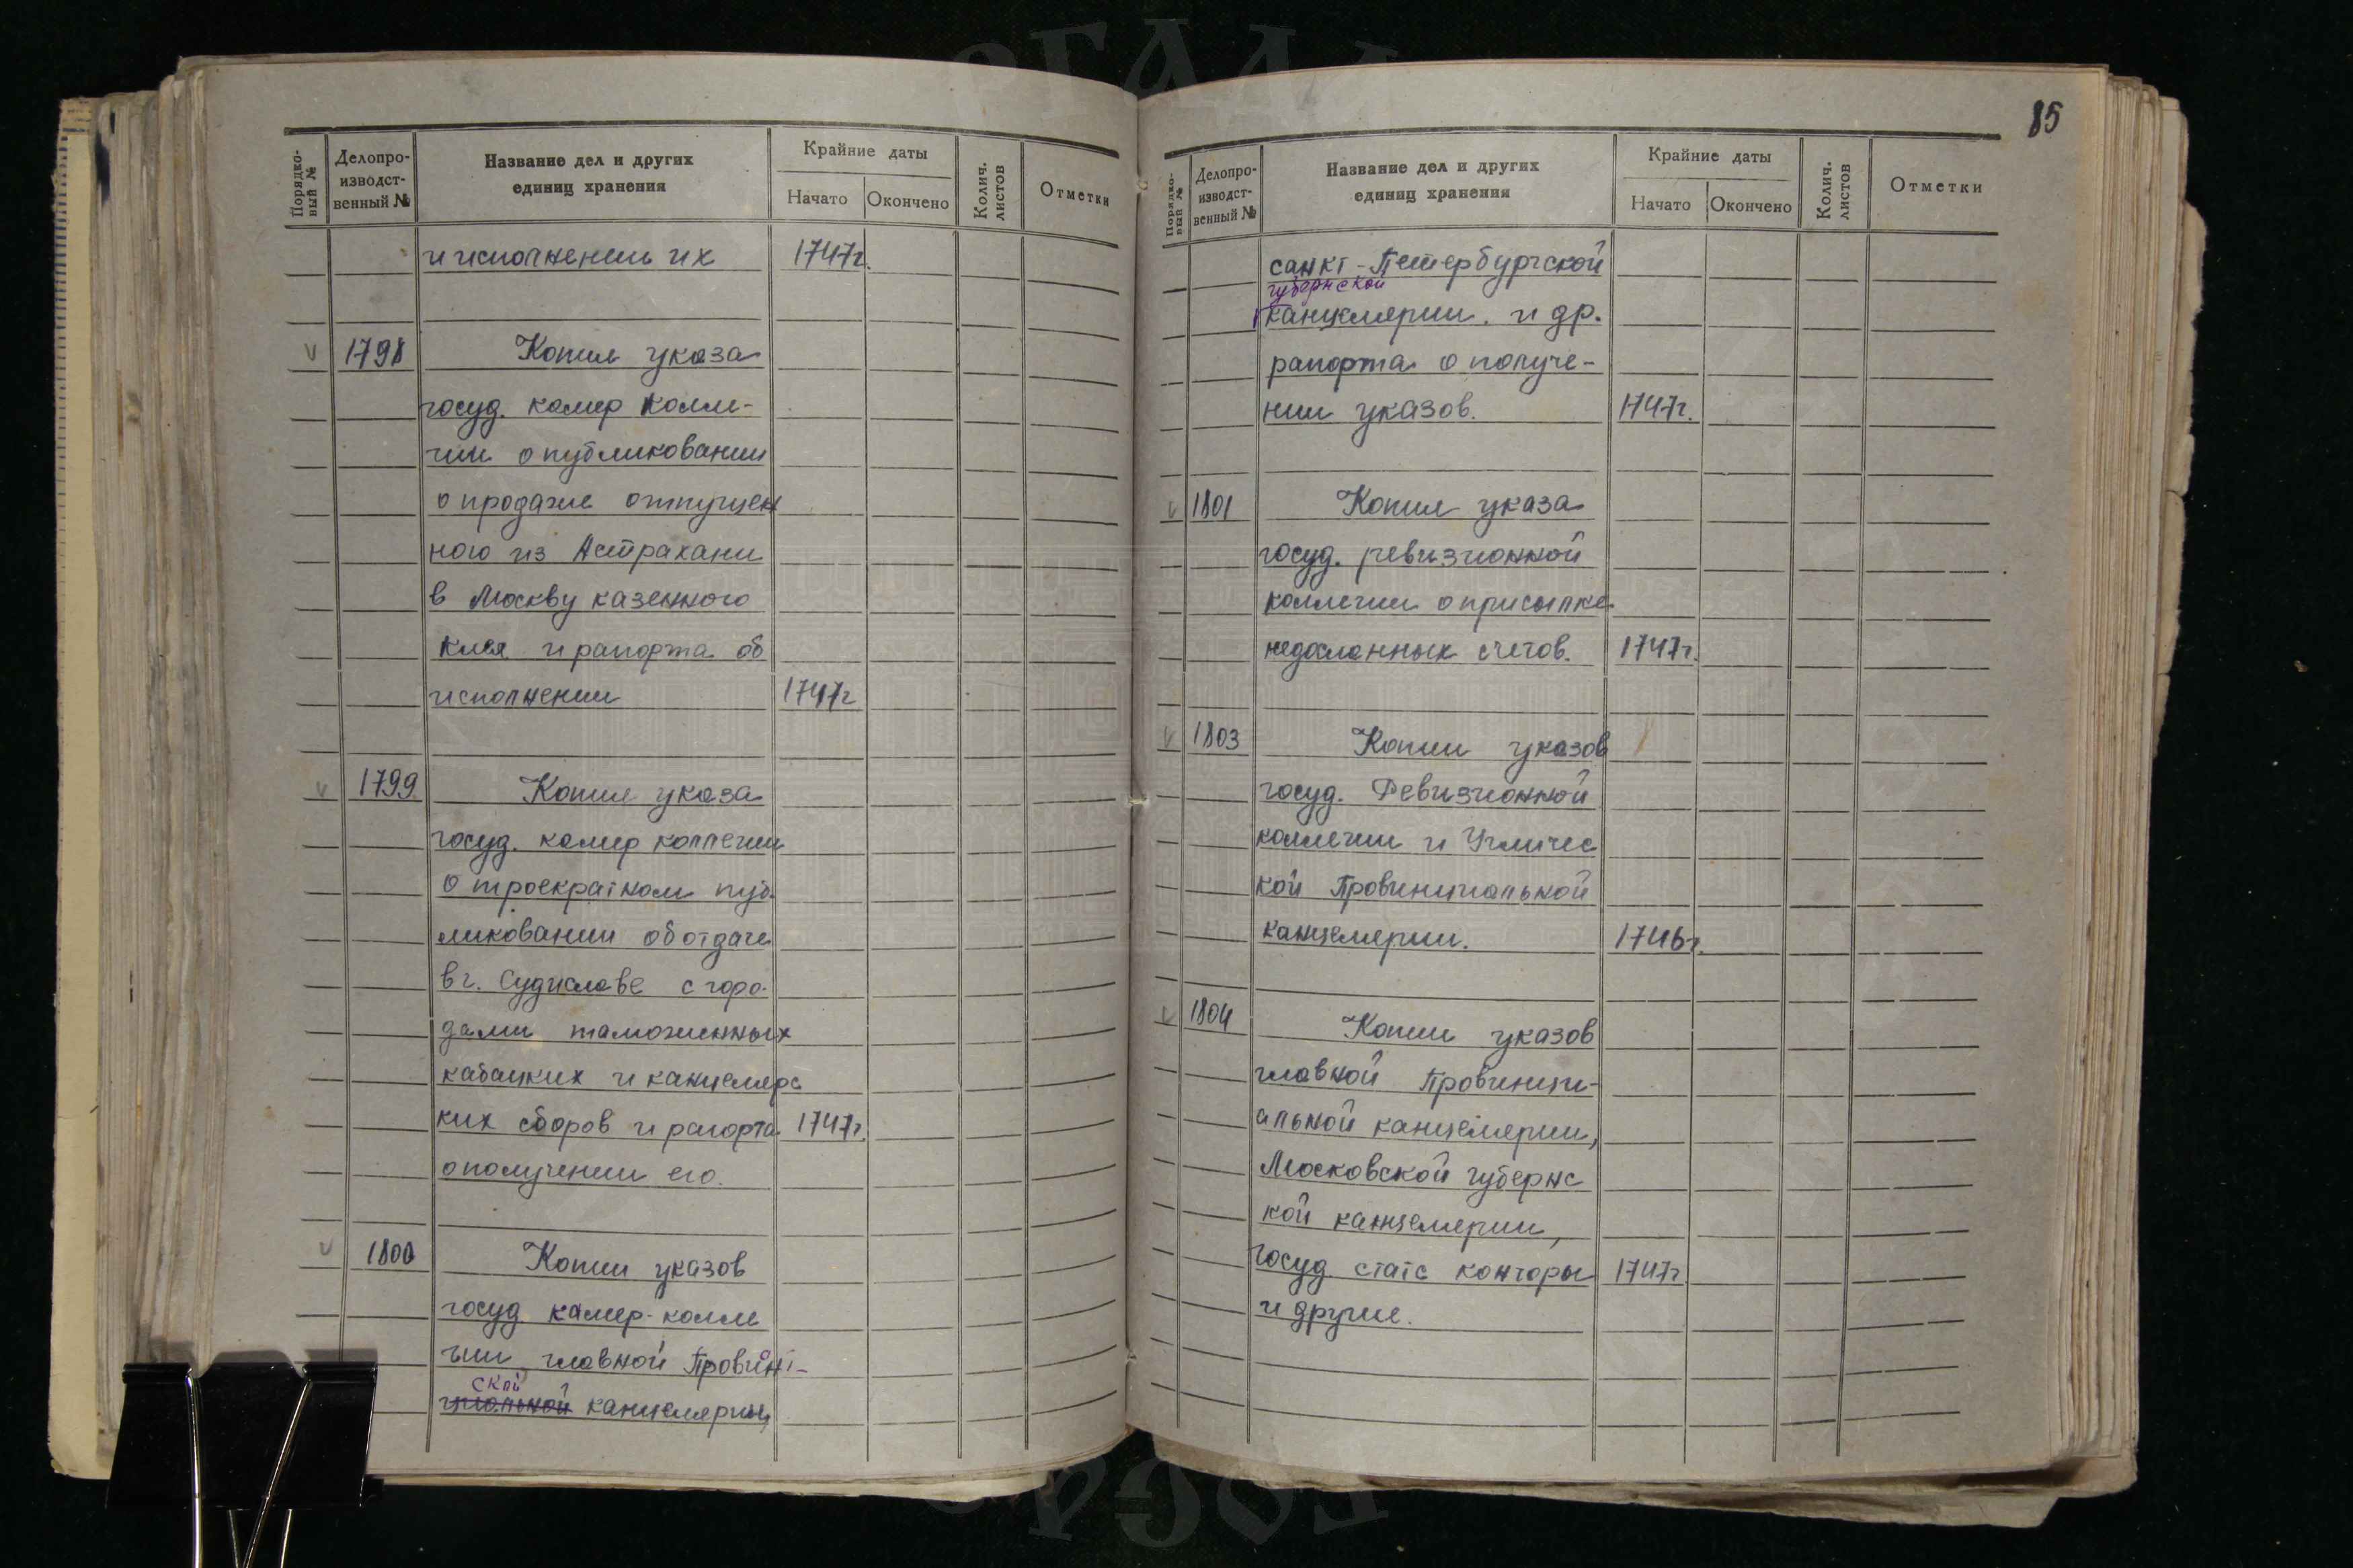 85
Порядко-
вый №
Делопро-
изводст-
венный №
Название дел и других
единиц хранения
Крайние даты
Начато
Окончено
Колич.
листов
Отметки
и исполнении их 1747г.
1798 Копия указа
госуд. камер колле-
гии о публиковании
о продаже отпущен
ного из Астрахани
в Москву казенного
клея и рапорта об
исполнении 1747г
1799 Копия указа
госуд. камер коллегии
о троекратном пуб
ликовании об отдаче
в г. Судиславе с горо
дами таможенных
кабацких и канцелярс
ких сборов и рапорта 1747г.
о получении его.
1800 Копии указов
госуд. камер-колле
гии, главной Провин-
циальной канцелярии,
ской
Порядко-
вый №
Делопро-
изводст-
венный №
Название дел и других
единиц хранения
Крайние даты
Начато
Окончено
Колич.
листов
Отметки
санкт-Петербургской
губернской
канцелярии. и др.
рапорта о получе-
нии указов. 1747г.
1801 Копия указа
госуд. ревизионной
коллегии о присылке
недосланных счетов. 1747г.
1803 Копии указов
госуд. Ревизионной
коллегии и Угличес
кой Провинциальной
канцелярии. 1746г.
1804 Копии указов
главной Провинци-
альной канцелярии,
Московской губернс
кой канцелярии,
госуд. статс конторы 1747г
и другие.